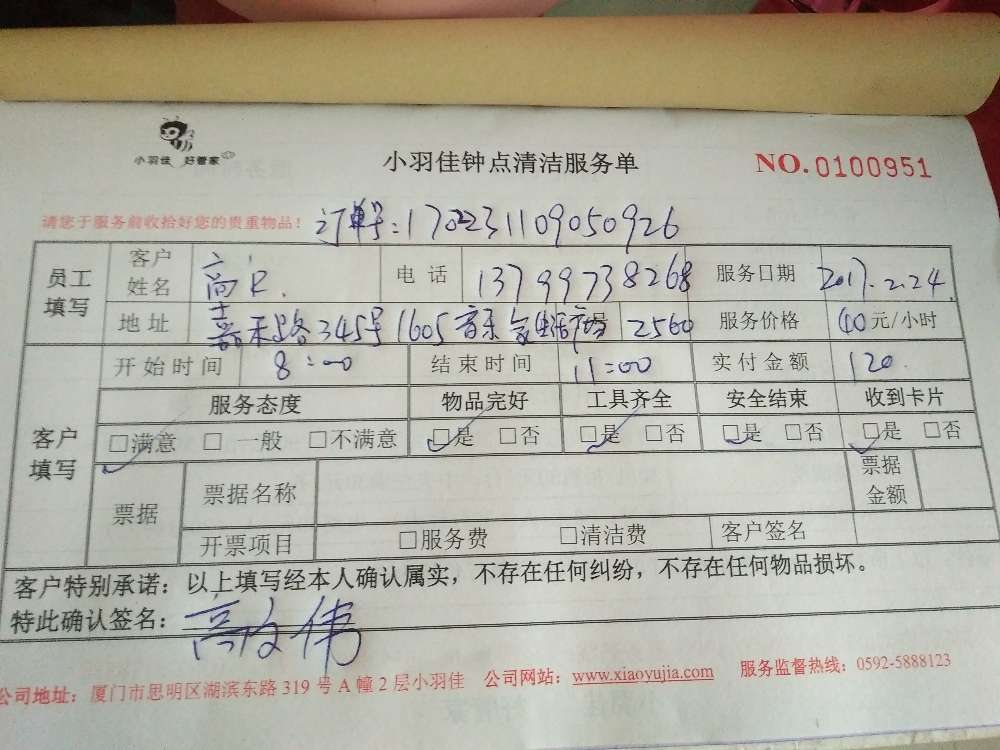 小羽佳 好管家
小羽佳钟点清洁服务单
NO.0100951
请您于服务前收拾好您的贵重物品！
订单号:170223110905092​6
员工填写
客户姓名 高 电话 13799738268 服务日期 2017.2.24
地址 嘉禾路345号1605音乐家生活广场 2560 服务价格 40元/小时
客户填写
开始时间 8:00 结束时间 11:00 实付金额 120
服务态度 物品完好 工具齐全 安全结束 收到卡片
□满意 □ 一般 □不满意 □是 □否 □是 □否 □是 □否 □是 □否
票据 票据名称 票据金额
开票项目 □服务费 □清洁费 客户签名
客户特别承诺：以上填写经本人确认属实，不存在任何纠纷，不存在任何物品损坏。
特此确认签名：高 伟
公司地址：厦门市思明区湖滨东路 319 号 A 幢 2 层小羽佳 公司网站：www.xiaoyujia.com 服务监督热线：0592-5888123